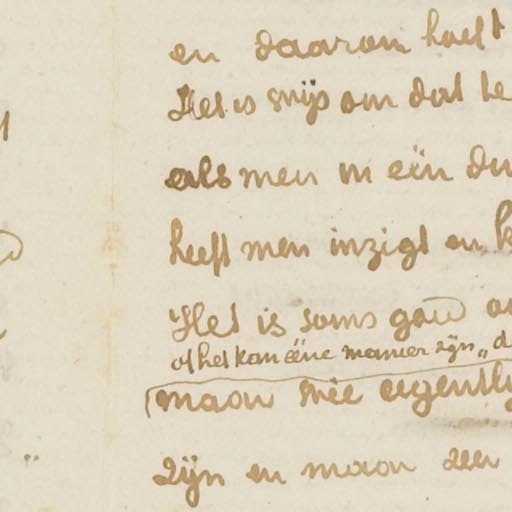 en daarom hoeft
Het is wijs om dat te
als men in eën
heeft men inzigt en
Het is soms goed
of het kan ééne manier zijn „
maar wie eigentlijk
zijn en maar zeer